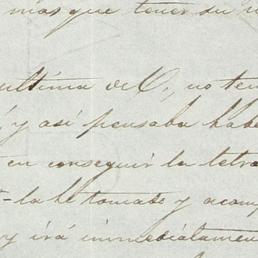 mas que tener su
última de O, no ten
, y así pensaba habe
en conseguir la letra
la he tomado y acom
y irá inmediatamen